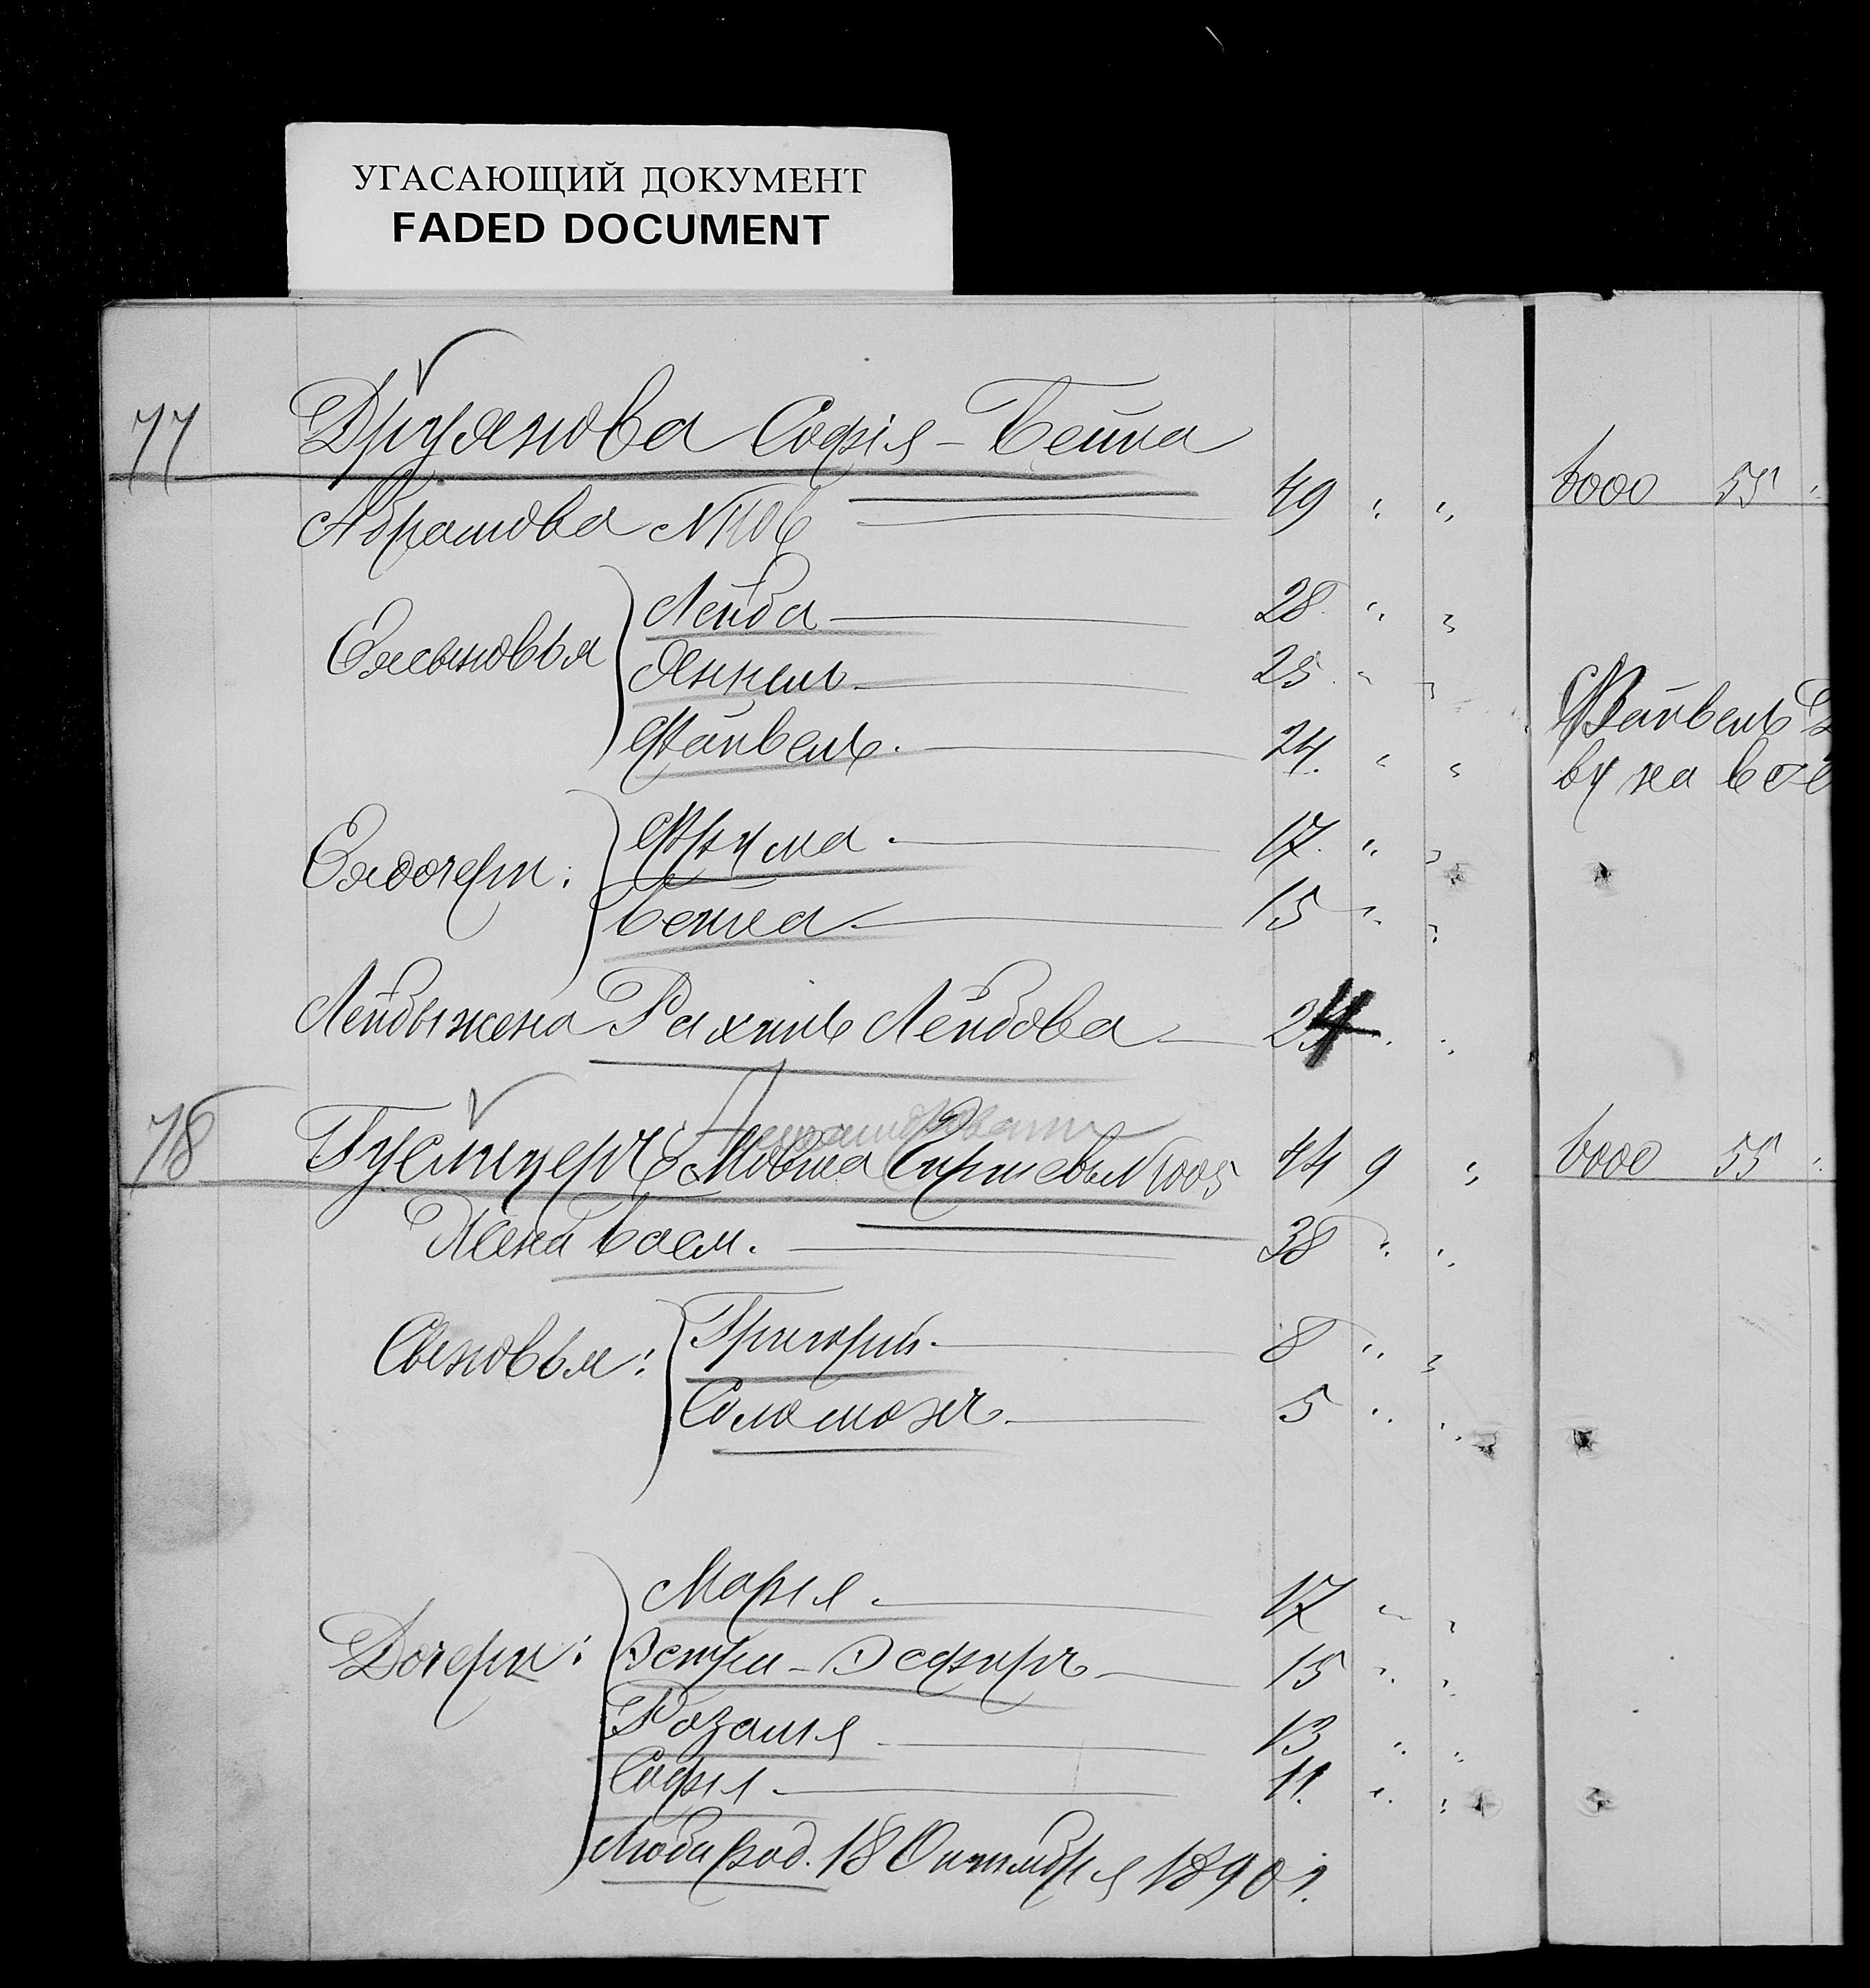 УГАСАЮЩИЙ ДОКУМЕНТ
FADED DOCUMENT
77 Друянова Софія - Бейла
Абрамова N1106 49 " " 6000 55 "
Ея сыновья
Лейба 28 " "
Янкель 25 " "
Файвель 24 " " Файвель
ву на
Ея дочери:
Фрума 17 " "
Бейла 15 " "
Лейбы жена Рахиль Лейбова 24 " "
78 Мовша Гиршевъ N1005 44 9 " 6000 55 "
Жена 38 " "
Сыновья:
Григорій 8 " "
Соломонъ 5 " "
Дочери:
Марія 17 " "
Эстри - Эсфирь 15 " "
Розалія 13 " "
Софія 11 " "
Люба род. 18 Октября 1890 г.